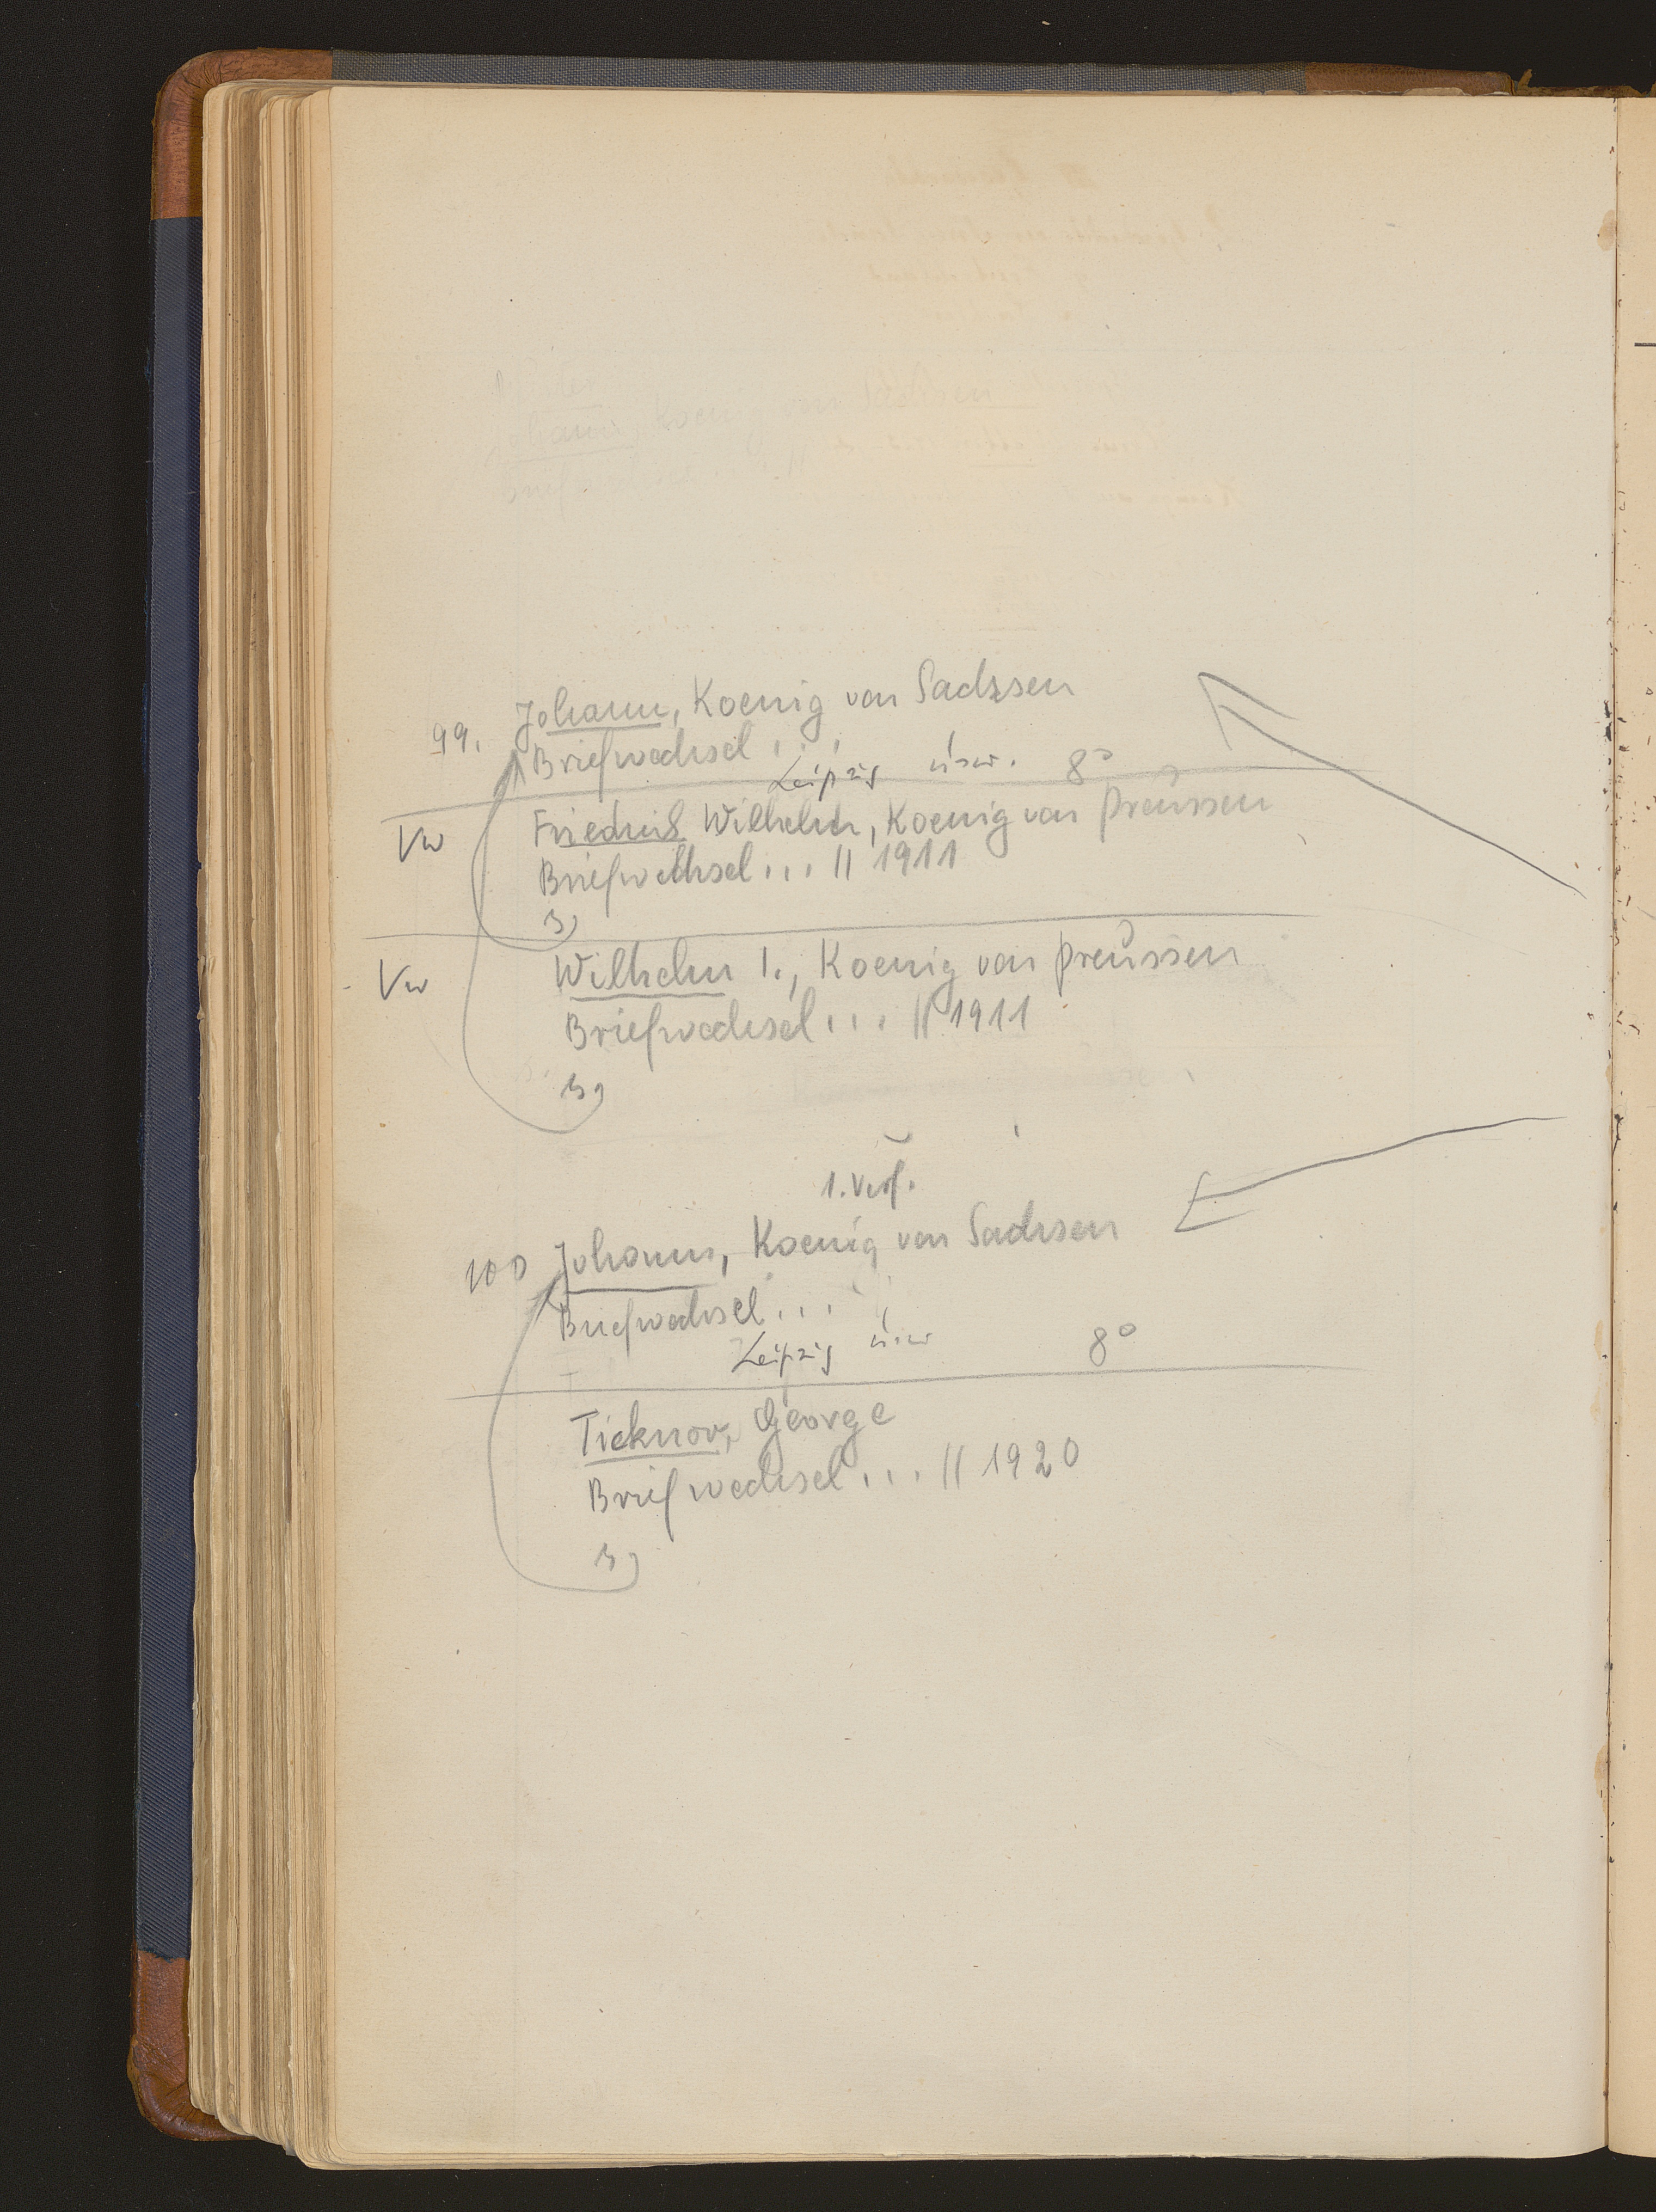 99. Johann, Koenig von Sachsen
Briefwechsel...
Leipzig usw. 8°
Vw Friedrich Wilhelm, Koenig von Preussen
Briefwechsel... || 1911
Vw Wilhelm I., Koenig von Preussen
Briefwechsel... || 1911
1. Verf.
100 Johann, Koenig von Sachsen
Briefwechsel...
Leipzig usw 8°
Ticknor, George
Briefwechsel... || 1920